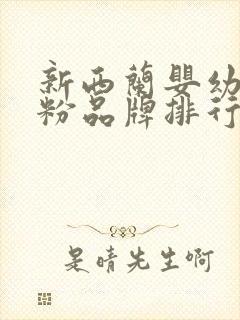 新西蘭嬰幼
粉品牌排行
是晴先生啊